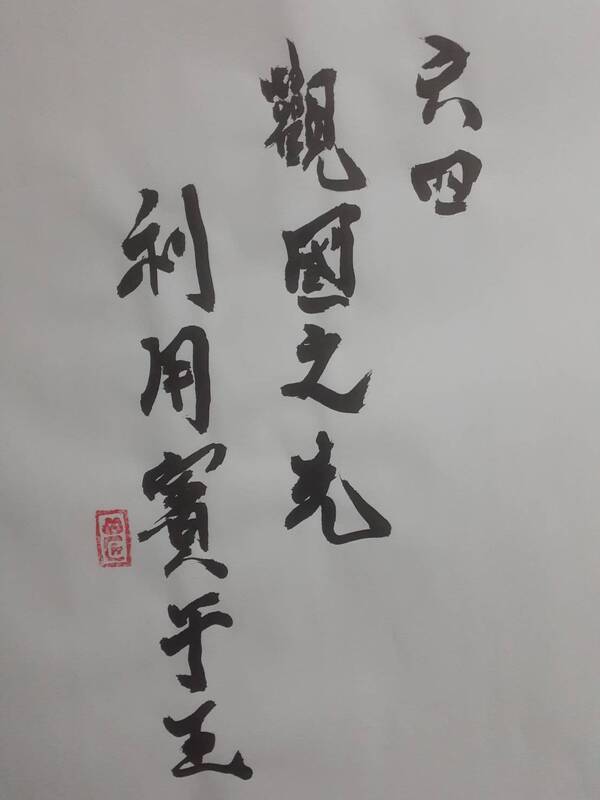 六四
觀國之光
利用賓于王